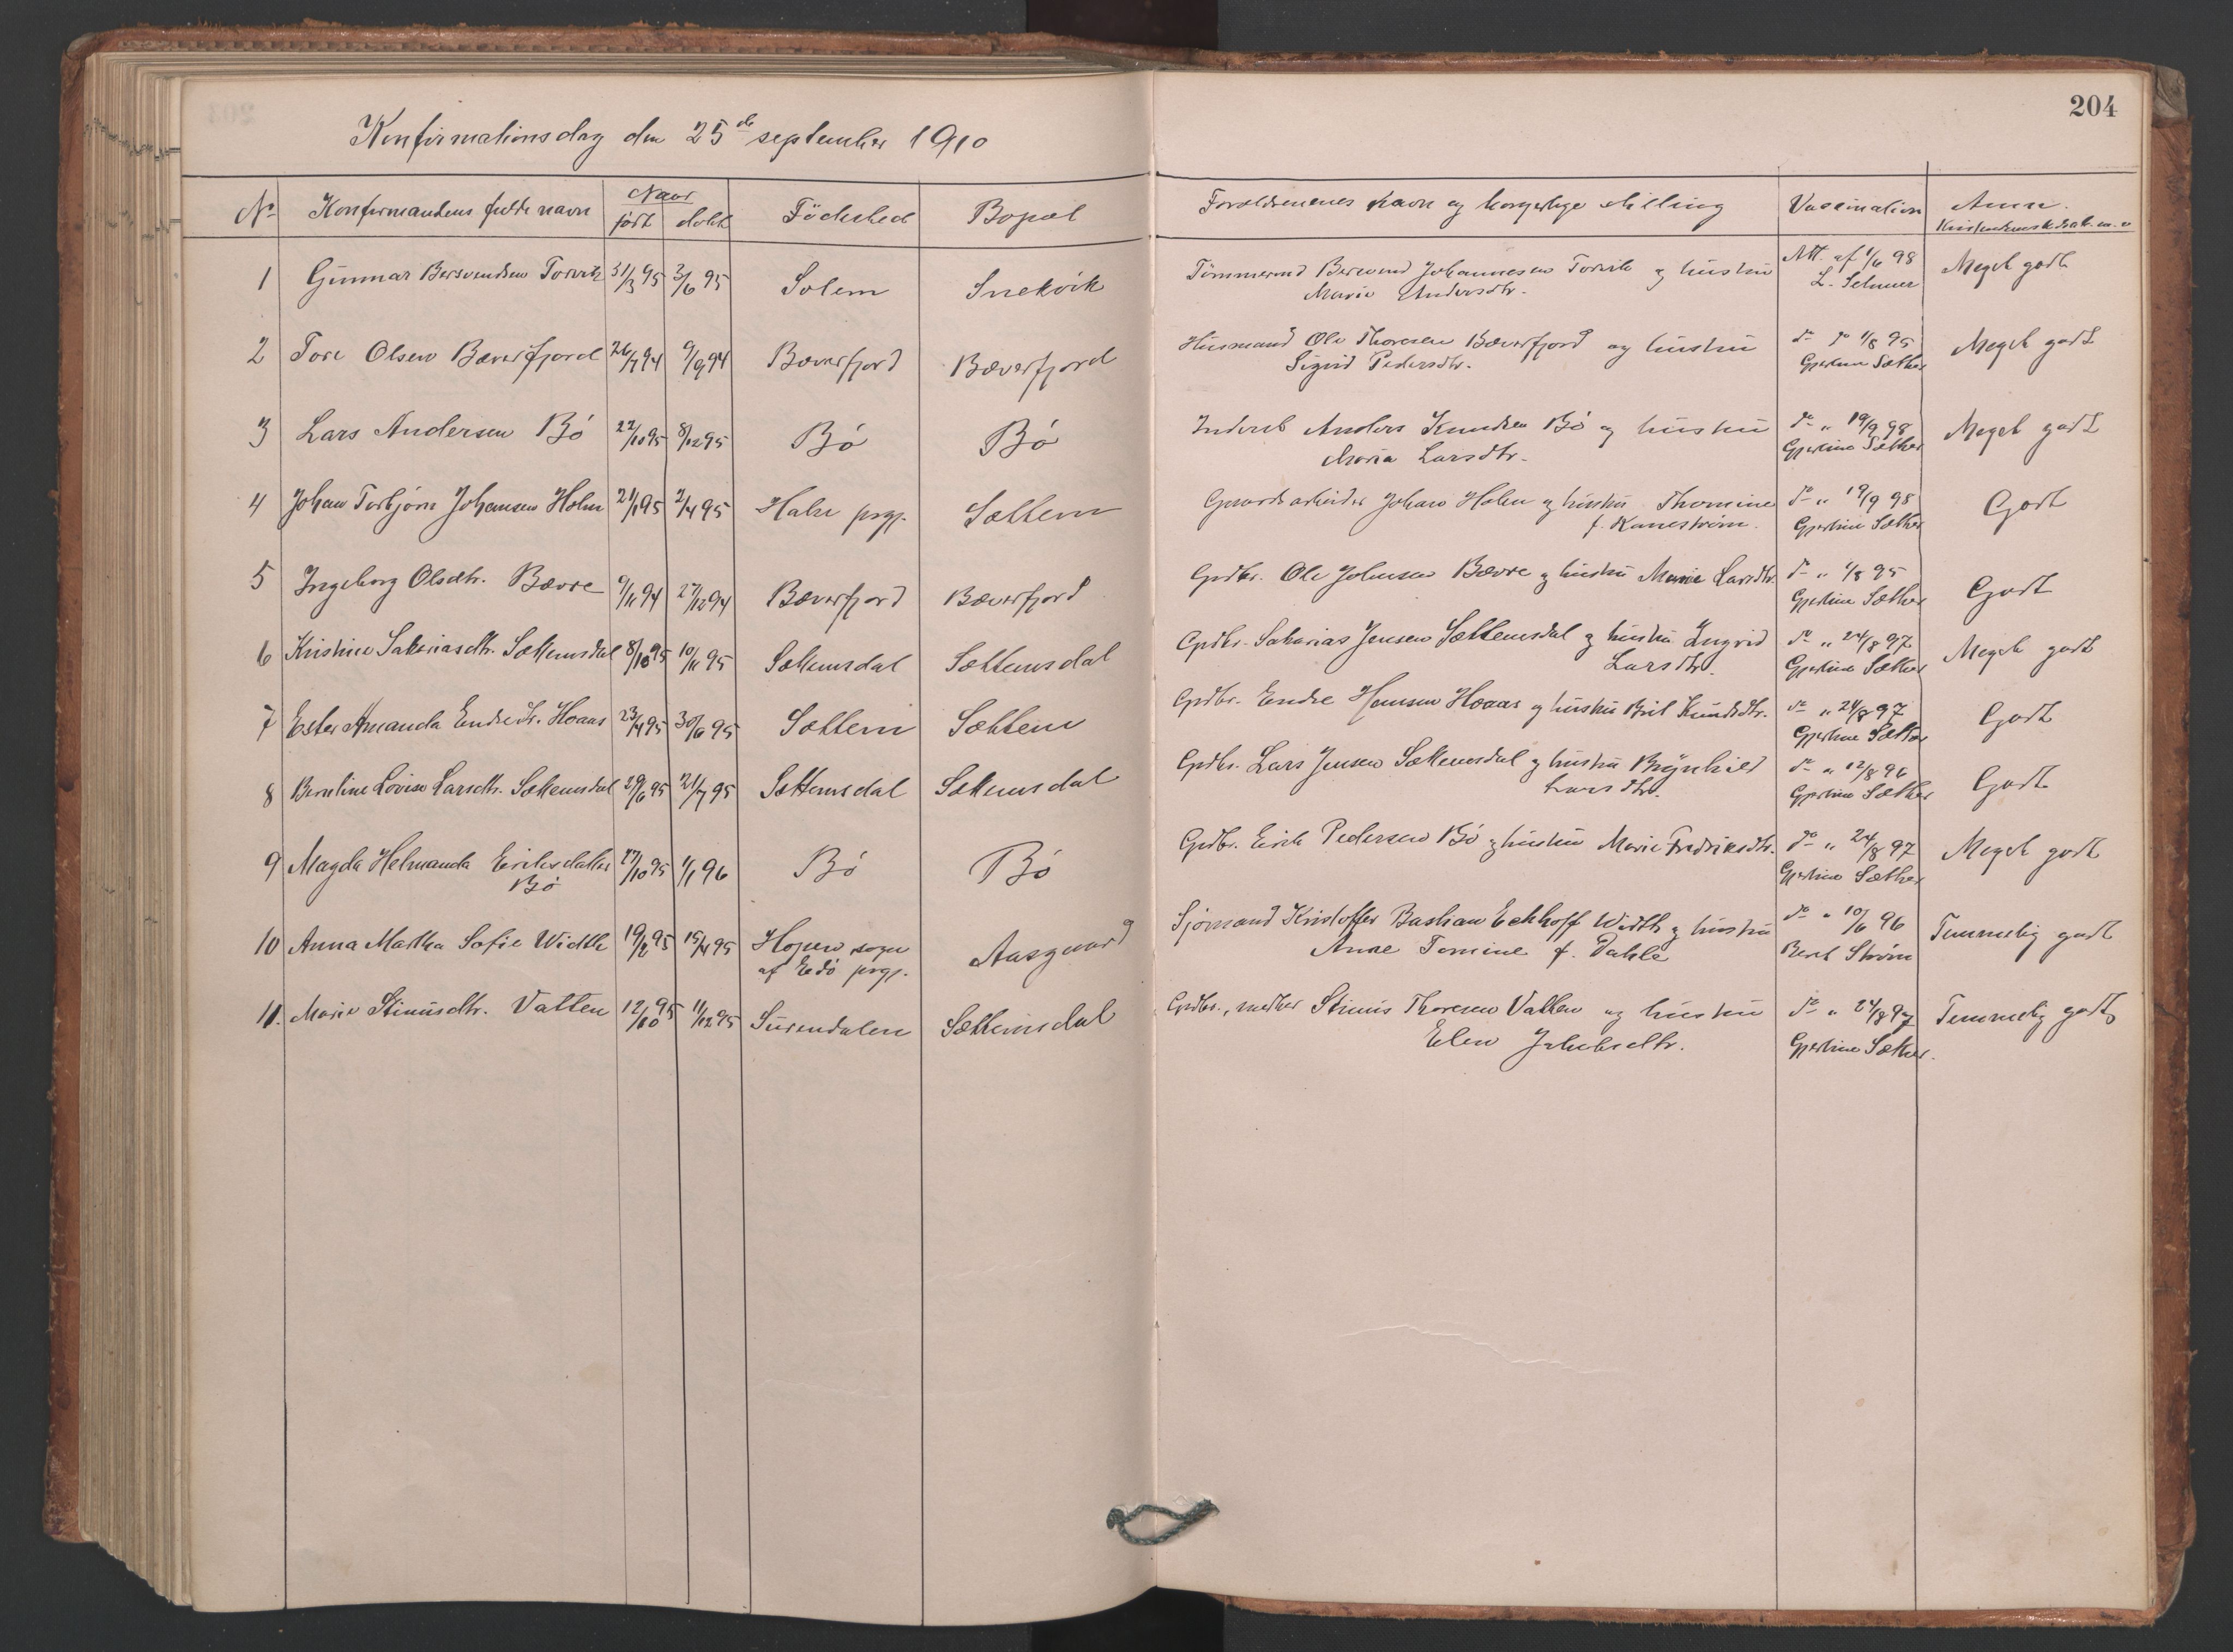 204
Konfirmationsdag den 25de september 1910
No Konfirmandens fulde navn Naar født døbt Födested Bopæl Forældrenenes navn og borgerlige stilling Vaccination Anm. Kristendomskundsk. m. v.
1 Gunnar Bersvendsen Torvik 31/3 95 3/6 95 Solem Snekvik Tömmermd Bersvend Johannesen Torvik og hustru Att. af 1/6 98 Meget godt
Marie Andersdtr. L. Selmer
2 Tore Olsen Bæverfjord 26/7 94 9/9 94 Bæverfjord Bæverfjord Husmand Ole Thoresen Bæverfjord og hustru do do 1/8 95 Meget godt
Sigrid Pedersdtr. Gjertine Sæther
3 Lars Andersen Bö 22/10 95 8/12 95 Bö Bö Inderst Anders Knudsen Bö og hustru do " 19/9 98 Meget godt
Maria Larsdtr. Gjertine Sæther
4 Johan Torbjörn Johansen Holm 21/1 95 2/4 95 Halse prgj. Sættem Gaardsarbeider Johan Holm og hustru Thomine do " 19/9 98 Godt
f. Kanestrøm. Gjertine Sæther
5 Ingeborg Olsdtr. Bævre 9/11 94 27/12 94 Bæverfjord Bæverfjord Grdbr. Ole Johnsen Bævre og hustru Marie Larsdtr. do " 1/8 95 Godt
Gjertine Sæther
6 Kristine Sakariasdtr. Sættemsdal 8/10 95 10/11 95 Sættemsdal Sættemsdal Grdbr. Sakarias Jensen Sættemsdal og hustru Ingrid do " 24/8 97 Meget godt
Larsdtr. Gjertine Sæther
7 Ester Amanda Endredtr. Hoaas 23/4 95 30/6 95 Sættem Sættem Grdbr. Endre Hansen Hoaas og hustru Brit Knudsdtr. do " 24/8 97 Godt
Gjertine Sæther
8 Berntine Lovise Larsdtr. Sættemsdal 29/6 95 21/7 95 Sættemsdal Sættemsdal Grdbr. Lars Jensen Sættemsdal og hustru Brynhild do " 12/8 96 Godt
Larsdtr. Gjertine Sæther
9 Magda Helmanda Eriksdatter 27/10 95 1/1 96 Bö Bö Grdbr. Erik Pedersen Bö og hustru Marie Fredriksdtr. do " 24/8 97 Meget godt
Bö Gjertine Sæther
10 Anna Martha Sofie Width 19/2 95 15/4 95 Hopen sogn Aasgaard Sjömand Kristoffer Bastian Eckhoff Width og hustru do " 10/6 96 Temmelig godt
af Edö prgj. Anne Tomine f. Dahle Berit Strøm
11. Marie Stinusdtr. Vatten 12/10 95 11/12 95 Surendalen Sættemsdal Grdbr., Stinus Thoresen Vatten og hustru do " 24/8 97 Temmelig godt
Elen Jakobsdtr. Gjertine Sæther.